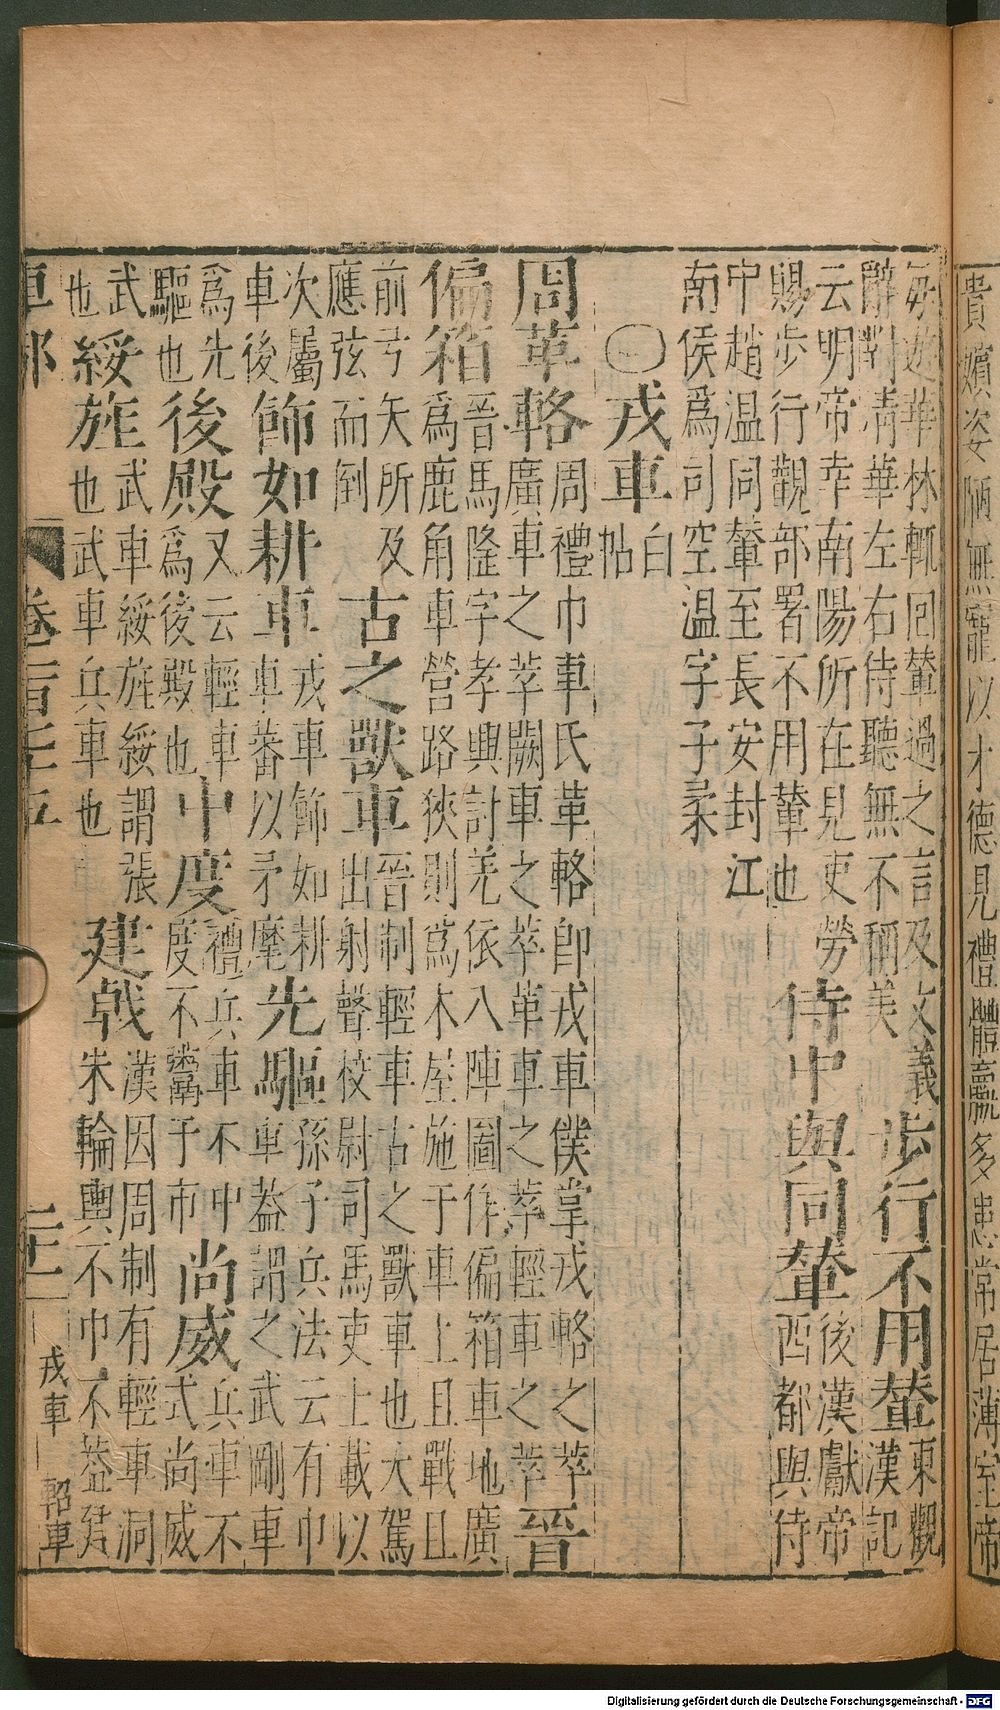 貴嬪姿陋無寵以才德見禮體羸多患常居薄室帝
每遊華林輒回輦過之言及文義
辭對清華左右侍聽無不稱美
步行不用輦
東觀
漢記
云明帝幸南陽所在見吏勞
賜步行觀部署不用輦也
侍中與同輦
後漢獻帝
西都與侍
中趙温同輦至長安封江
南侯爲司空温字子柔
戎車
白
帖
周革輅
周禮巾車氏革輅即戎車僕掌戎輅之萃
廣車之萃闕車之萃革車之萃輕車之萃
晉
偏箱
晉馬隆字孝興討羌依八陣圖作偏箱車地廣
爲鹿角車營路狹則爲木屋施于車上且戰且
前弓矢所及
應弦而倒
古之獸車
晉制輕車古之獸車也大駕
出射聲校尉司馬吏上載以
次屬
車後
飾如耕車
戎車飾如耕
車蕃以矛麾
先驅
孫子兵法云有巾
車蓋謂之武剛車
爲先
驅也
後殿
又云輕車
爲後殿也
中度
禮兵車不中
度不鬻于市
尚威
兵車不
式尚威
武
也
綏旌
武車綏旌綏謂張
也武車兵車也
建戟
漢因周制有輕車洞
朱輪輿不巾不蓋建
車部
卷一百三十五
二十一
戎車
軺車
Digitalisierung gefördert durch die Deutsche Forschungsgemeinschaft - DFG